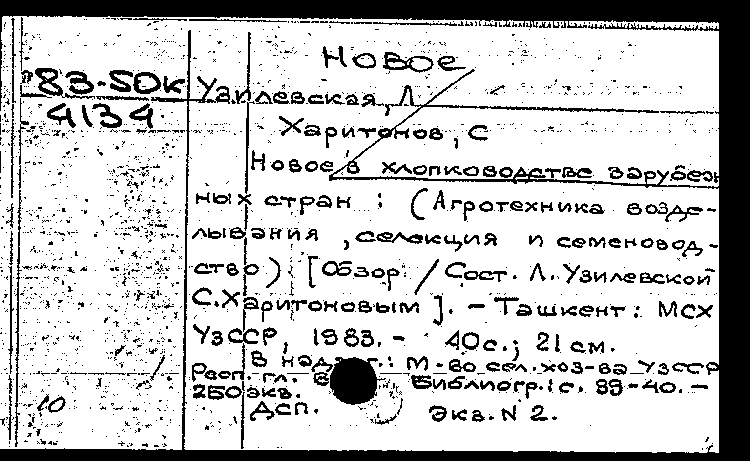 Новое
83-50к Узилевская, Л
4134
Харитонов, С
Новое в хлопководстве зарубеж
ных стран : (Агротехника возде-
лывания, селекция и семеновод-
ство) [Обзор / Сост. Л. Узилевской
С. Харитоновым ]. - Ташкент: МСХ
УзССР, 1983. - 40с.; 21 см.
В надзаг.: М-во сел. хоз-ва УзССР
гл. Библиогр.: с. 39-40. -
250 экз.
10 ДСП. Экз. N 2.